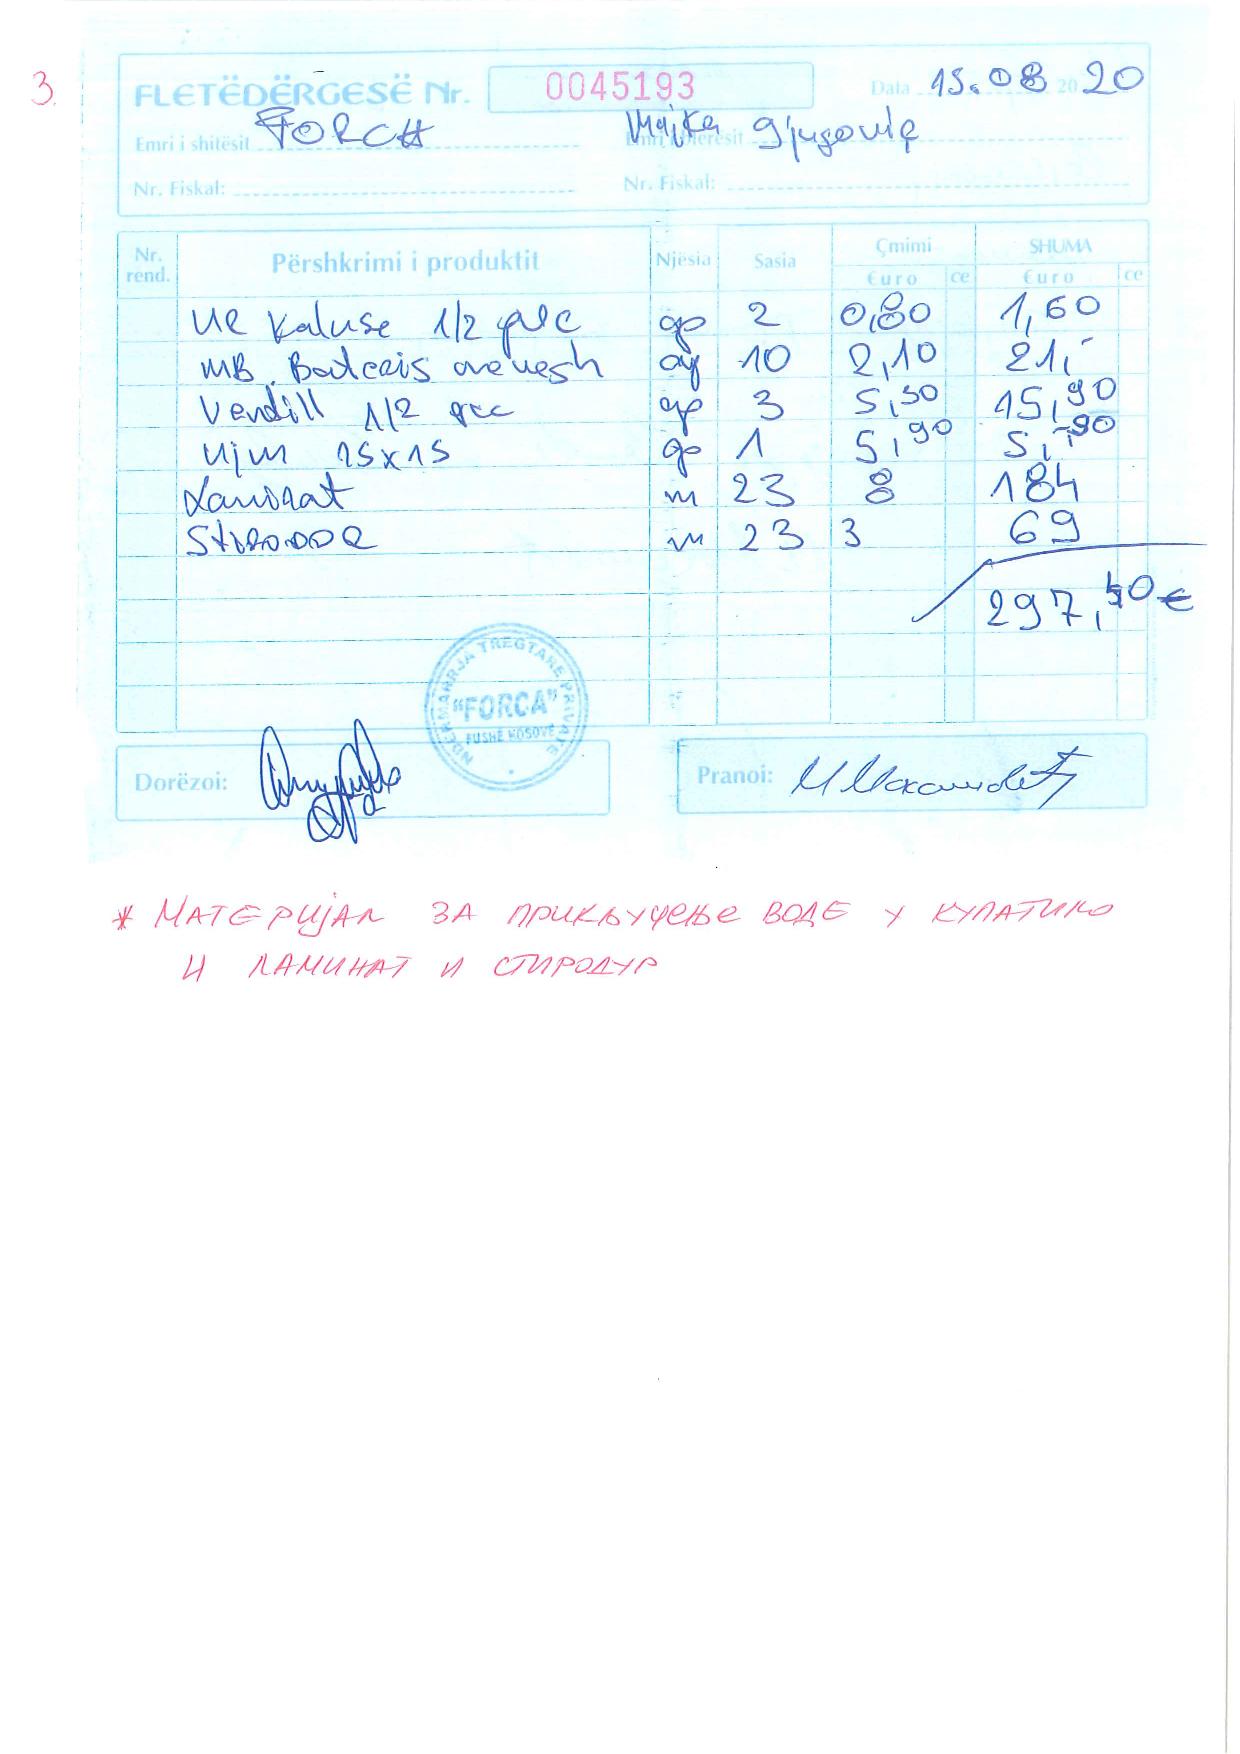 3.
FLETËDËRGESË Nr. 0045193 Data 15.08 2020
Emri i shitësit FORCA Emri i blerësit Majka
Nr. Fiskal: Nr. Fiskal:
Nr. rend. Përshkrimi i produktit Njësia Sasia Çmimi SHUMA
Euro ce Euro ce
1/2 2 0,80 1,60
MB. 10 2,10 21,-
Ventill 1/2 3 5,30 15,90
25x15 1 5,90 5,90
Laminat m 23 8 184
m 23 3 69
297,40€
NDERMARRJA TREGTARE PRIVATE
"FORCA"
FUSHË KOSOVË
Dorëzoi: Pranoi:
* МАТЕРИЈАЛ ЗА ПРИКЉУЧЕЊЕ ВОДЕ У КУПАТИЛО
И ЛАМИНАТ И СТИРОДУР